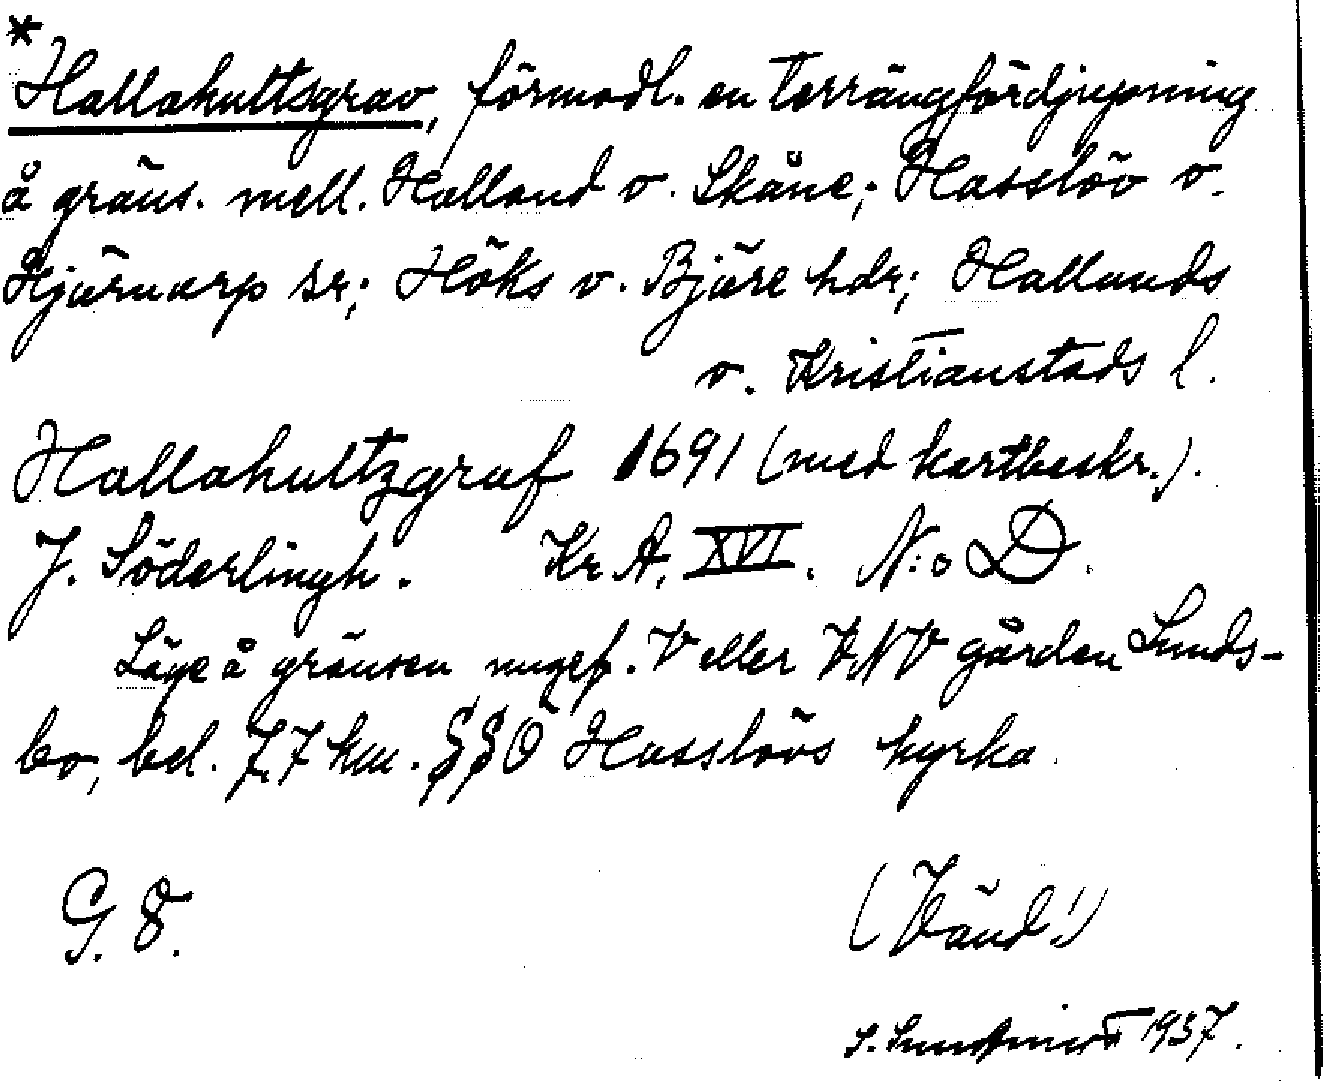 *
Hallahultsgrav, förmodl. en terrängfördjupning
å gräns. mell. Halland o. Skåne; Hasslöv o.
Hjärnarp sr; Höks o. Bjäre hdr; Hallands
o. Kristianstads l.
Hallahultzgraf 1691 (med kartbeskr.).
J. Söderlingh. Kr A. XVI. N:o D.
Läge å gränsen ungef. V eller VNV gården Lunds-
bo, bel. 7,7 km. SSÖ Hasslövs kyrka.
G. 8.
(Vänd!)
S. 1937.